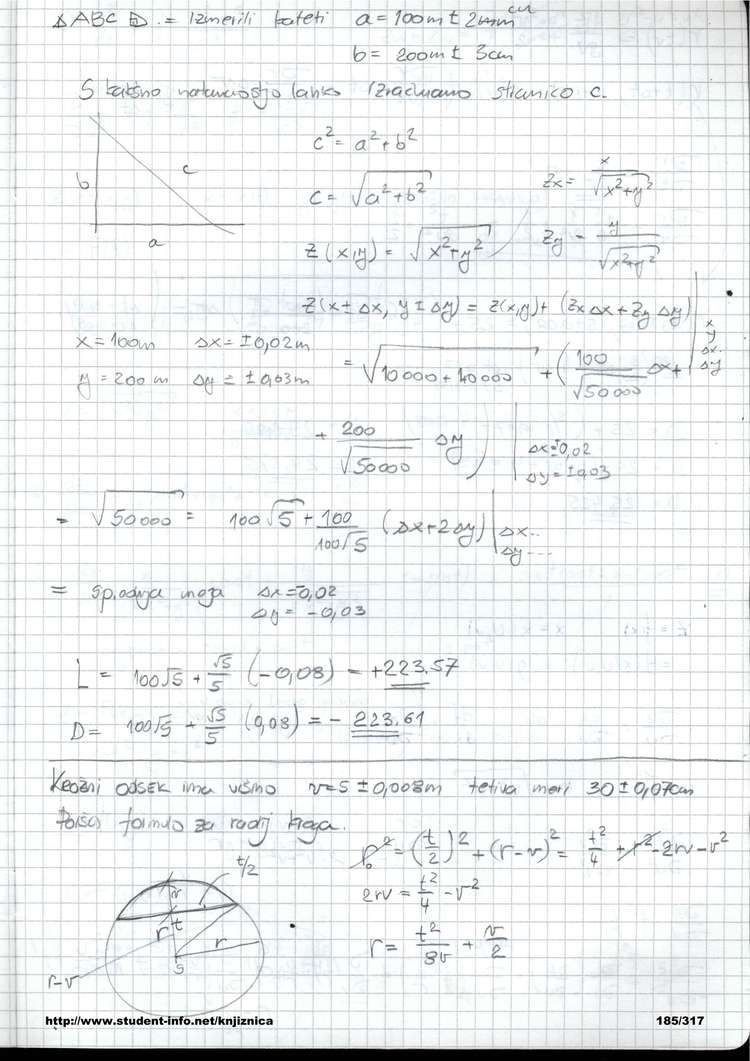 Δ ABC = Izmerili kateti a = 100m ± 2 cm
b = 200m ± 3cm
S kakšno natančnostjo lahko izračunamo stranico c.
b c a
c² = a² + b²
c = √(a² + b²)
Zx = x/√(x²+y²)
Z(x,y) = √(x²+y²)
Zy = y/√(x²+y²)
Z(x ± Δx, y ± Δy) = Z(x,y) + (Zx Δx + Zy Δy) | x y Δx Δy
x = 100m Δx = ±0,02m
y = 200m Δy = ±0,03m
= √(10000 + 40000) + (100/√50000 Δx +
+ 200/√50000 Δy) | Δx = ±0,02 Δy = ±0,03
= √50000 = 100√5 + 100/100√5 (Δx + 2Δy) | Δx.. Δy....
= Spodnja meja Δx = -0,02
Δy = -0,03
L = 100√5 + √5/5 (-0,08) = +223.57
D = 100√5 + √5/5 (0,08) = - 223.61
Krožni odsek ima višino v=5 ± 0,008m tetiva meri 30 ± 0,07cm
Poišči formulo za radij kroga.
r² = (t/2)² + (r-v)² = t²/4 + r² - 2rv - v²
2rv = t²/4 - v²
r = t²/8v + v/2
t/2
v
t
r
r
S
r-v
http://www.student-info.net/knjiznica 185/317